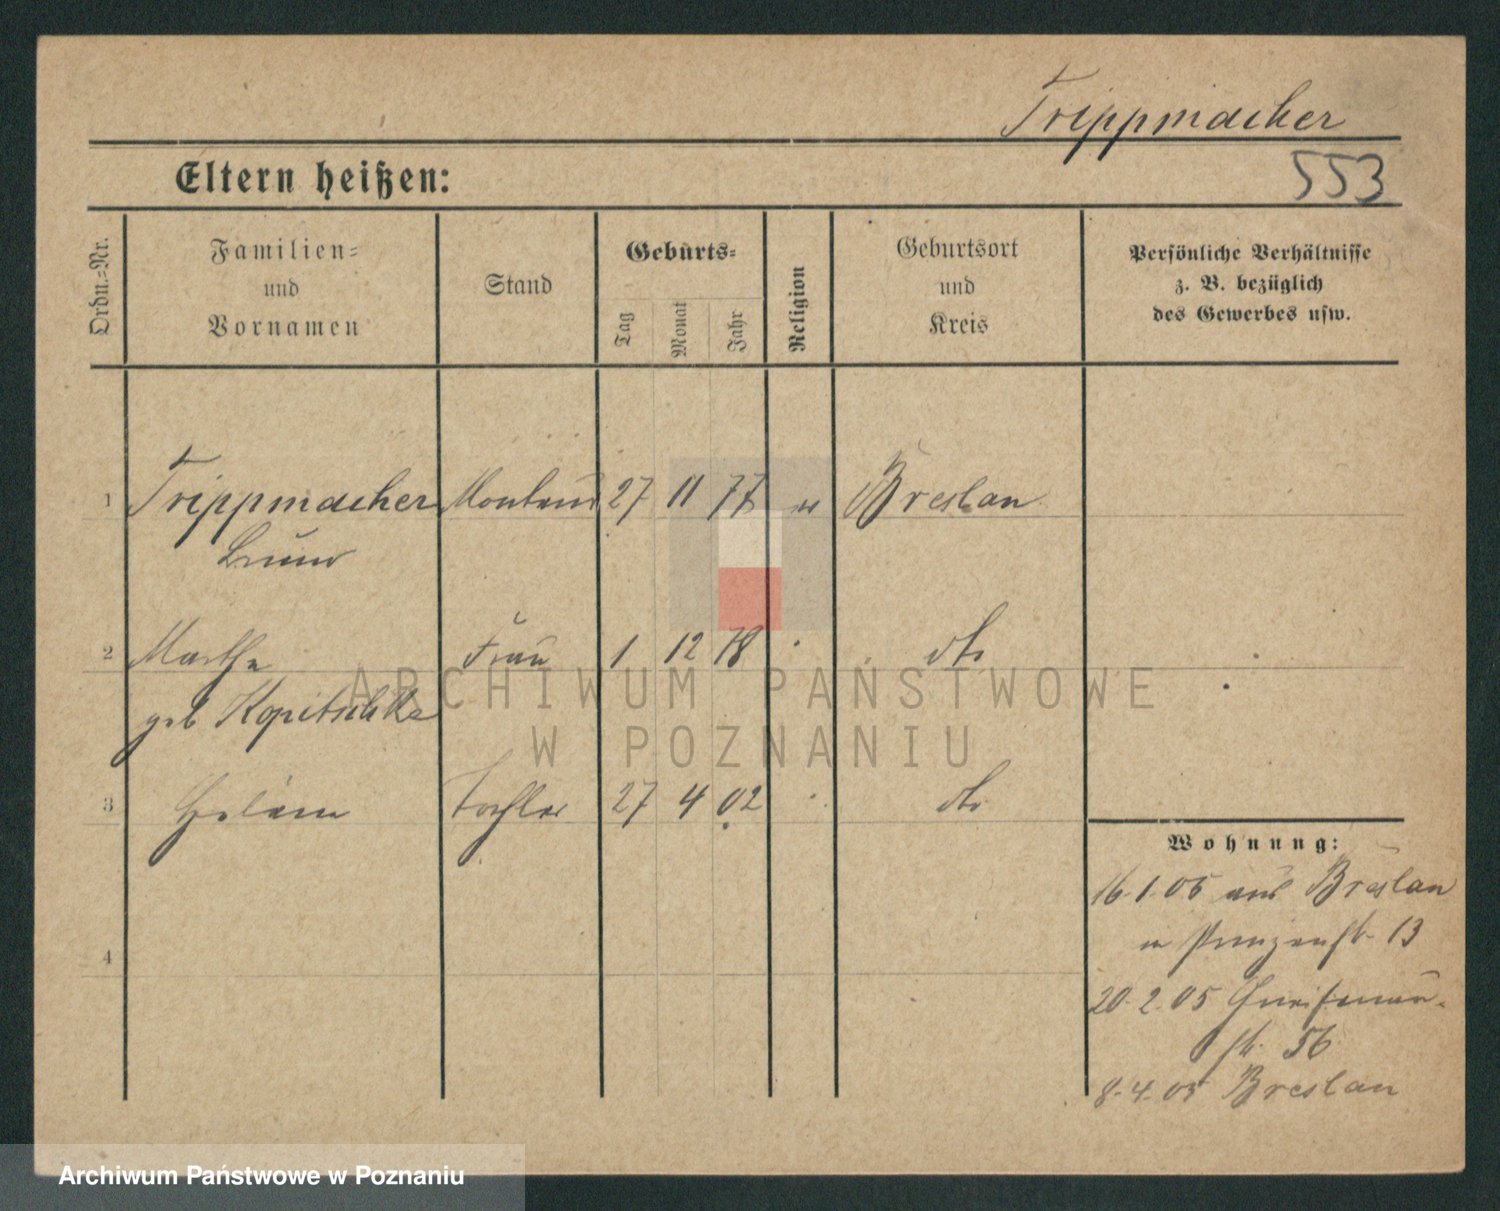 Trippmacher
Eltern heißen:
553
Ordn.=Nr.
Familien=
und
Vornamen
Stand
Geburts=
Tag
Monat
Jahr
Religion
Geburtsort
und
Kreis
Persönliche Verhältnisse
z. B. bezüglich
des Gewerbes usw.
1 Trippmacher Monteur 27 11 77 Breslau
Bruno
2 Martha Frau 1 12 78 dto
geb Kopitschke
3 Helene Tochter 27 4 02 dto
4
Wohnung:
16. 1. 05 aus Breslau
n Prinzenst. 13
20. 2. 05 Gneisenau-
st. 56
8. 4. 05 Breslau
ARCHIWUM PAŃSTWOWE
W POZNANIU
Archiwum Państwowe w Poznaniu